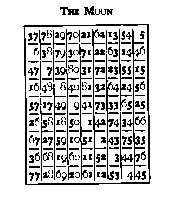 The Moon
37 78 29 70 21 62 13 54 5
6 38 79 30 71 22 63 14 46
47 7 39 80 31 72 23 55 15
16 48 8 40 81 32 64 24 56
57 17 49 9 41 73 33 65 25
26 58 18 50 1 42 74 34 66
67 27 59 10 51 2 43 75 35
36 68 19 60 11 52 3 44 76
77 28 69 20 61 12 53 4 45